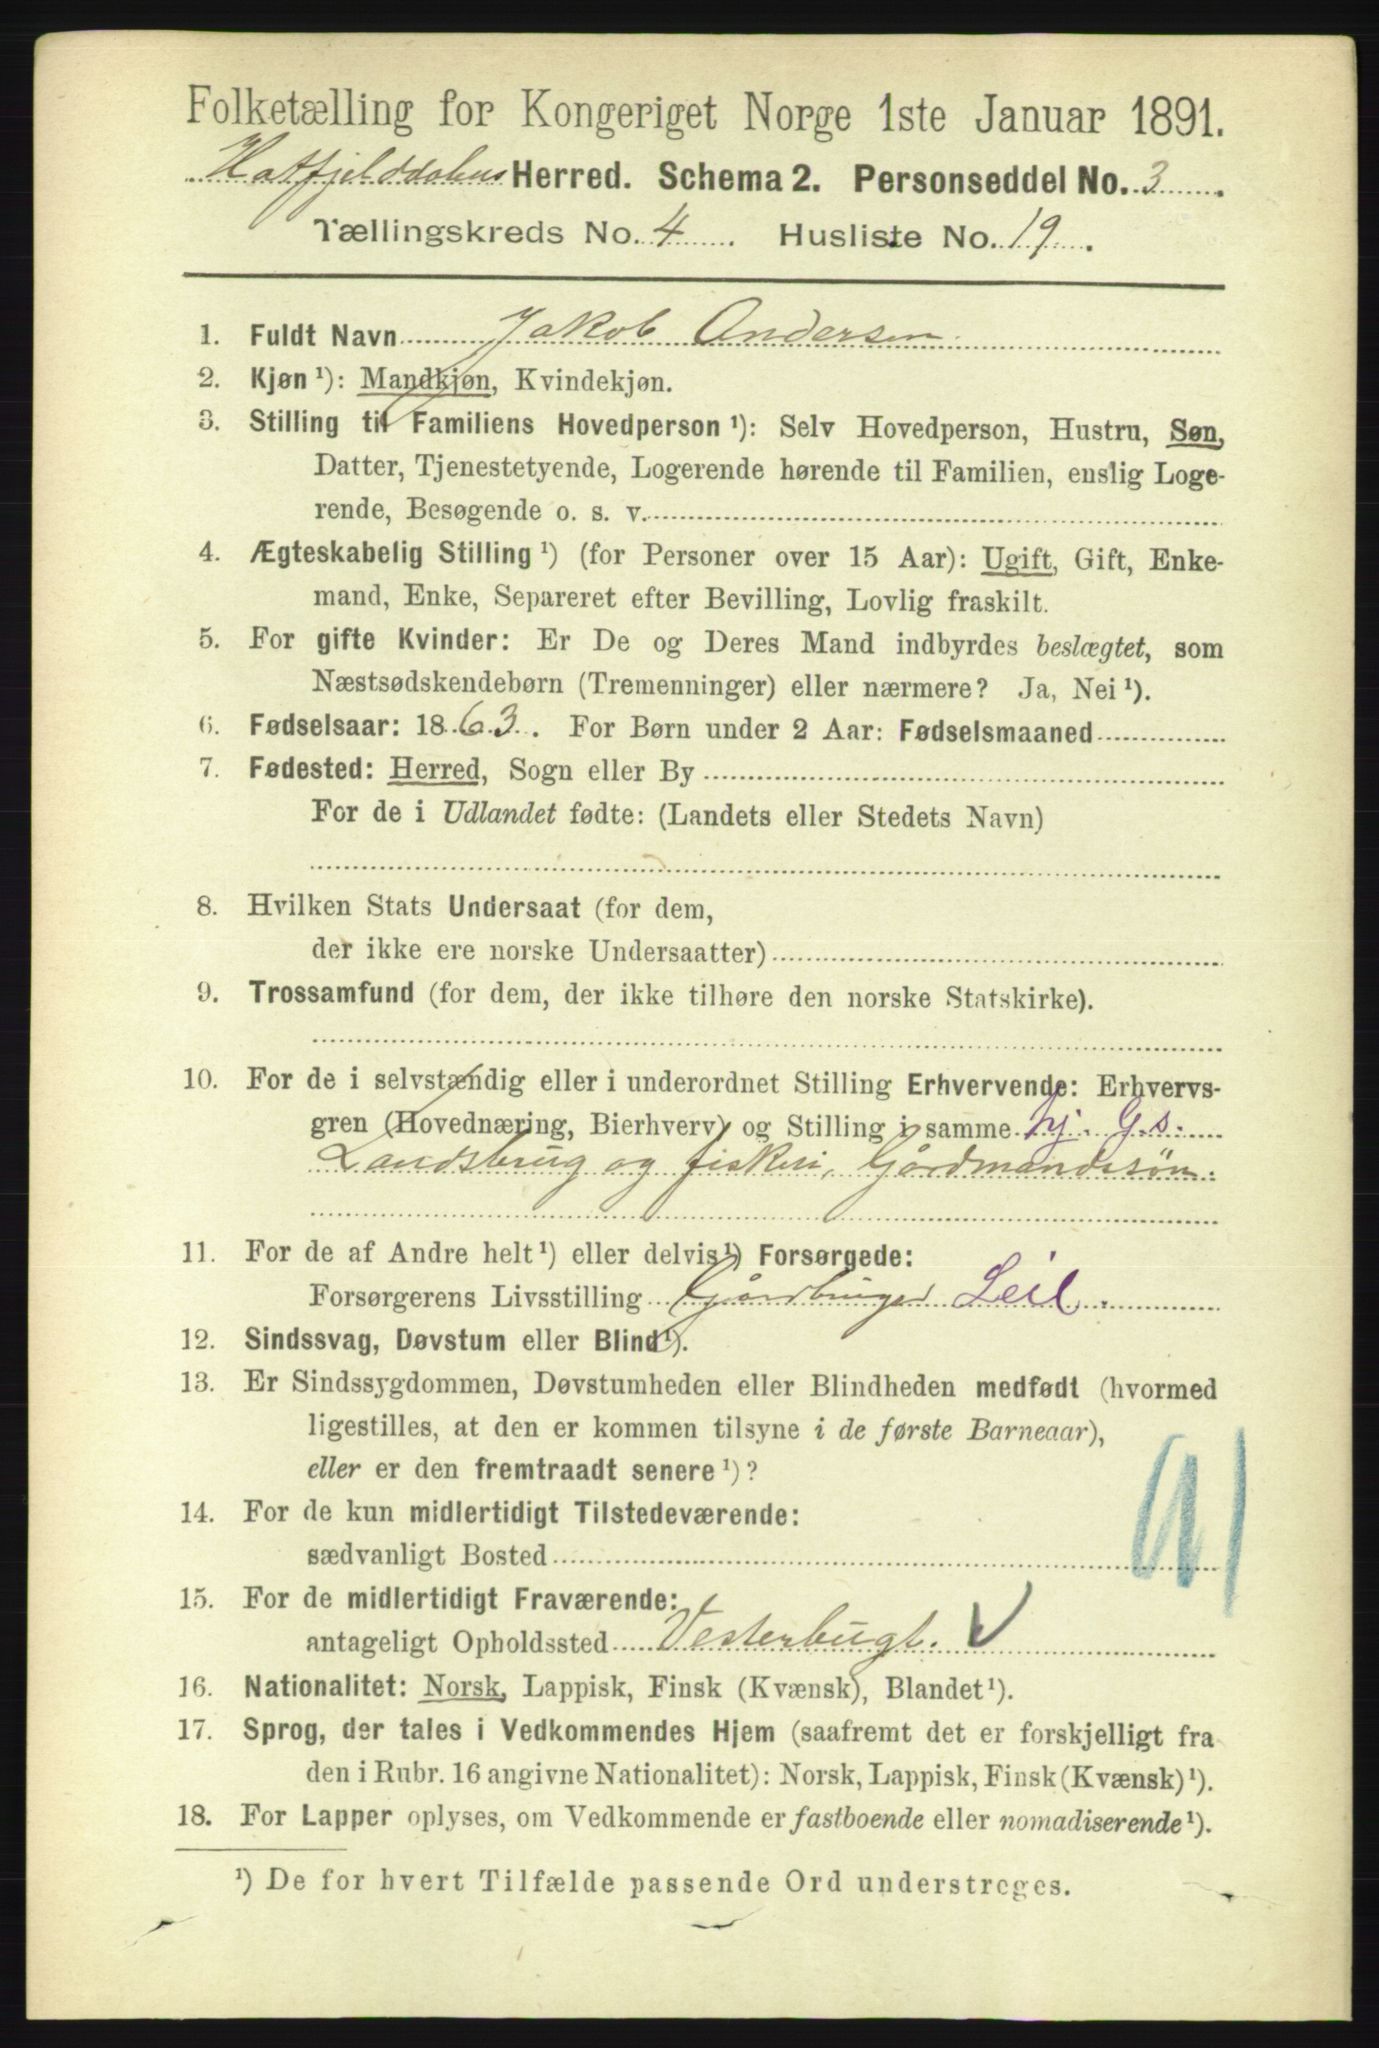 Folketælling for Kongeriget Norge 1ste Januar 1891.
Hatfjelddalens Herred. Schema 2. Personseddel No. 3.
Tællingskreds No. 4. Husliste No. 19.
1. Fuldt Navn Jakob Andersen
2. Kjøn ¹): Mandkjøn, Kvindekjøn.
3. Stilling til Familiens Hovedperson ¹): Selv Hovedperson, Hustru, Søn,
Datter, Tjenestetyende, Logerende hørende til Familien, enslig Loge-
rende, Besøgende o. s. v.
4. Ægteskabelig Stilling ¹) (for Personer over 15 Aar): Ugift, Gift, Enke-
mand, Enke, Separeret efter Bevilling, Lovlig fraskilt.
5. For gifte Kvinder: Er De og Deres Mand indbyrdes beslægtet, som
Næstsødskendebørn (Tremenninger) eller nærmere? Ja, Nei ¹).
6. Fødselsaar: 1863. For Børn under 2 Aar: Fødselsmaaned
7. Fødested: Herred, Sogn eller By
For de i Udlandet fødte: (Landets eller Stedets Navn)
8. Hvilken Stats Undersaat (for dem,
der ikke ere norske Undersaatter)
9. Trossamfund (for dem, der ikke tilhøre den norske Statskirke).
10. For de i selvstændig eller i underordnet Stilling Erhvervende: Erhvervs-
gren (Hovednæring, Bierhverv) og Stilling i samme hj. G. s.
Landsbrug og fiskeri, Gårdmandssøn.
11. For de af Andre helt ¹) eller delvis ¹) Forsørgede:
Forsørgerens Livsstilling Gårdbruger Leil.
12. Sindssvag, Døvstum eller Blind ¹).
13. Er Sindssygdommen, Døvstumheden eller Blindheden medfødt (hvormed
ligestilles, at den er kommen tilsyne i de første Barneaar),
eller er den fremtraadt senere ¹)?
14. For de kun midlertidigt Tilstedeværende:
sædvanligt Bosted
15. For de midlertidigt Fraværende:
antageligt Opholdssted Vesterbugt.
16. Nationalitet: Norsk, Lappisk, Finsk (Kvænsk), Blandet ¹).
17. Sprog, der tales i Vedkommendes Hjem (saafremt det er forskjelligt fra
den i Rubr. 16 angivne Nationalitet): Norsk, Lappisk, Finsk (Kvænsk) ¹).
18. For Lapper oplyses, om Vedkommende er fastboende eller nomadiserende ¹).
¹) De for hvert Tilfælde passende Ord understreges.